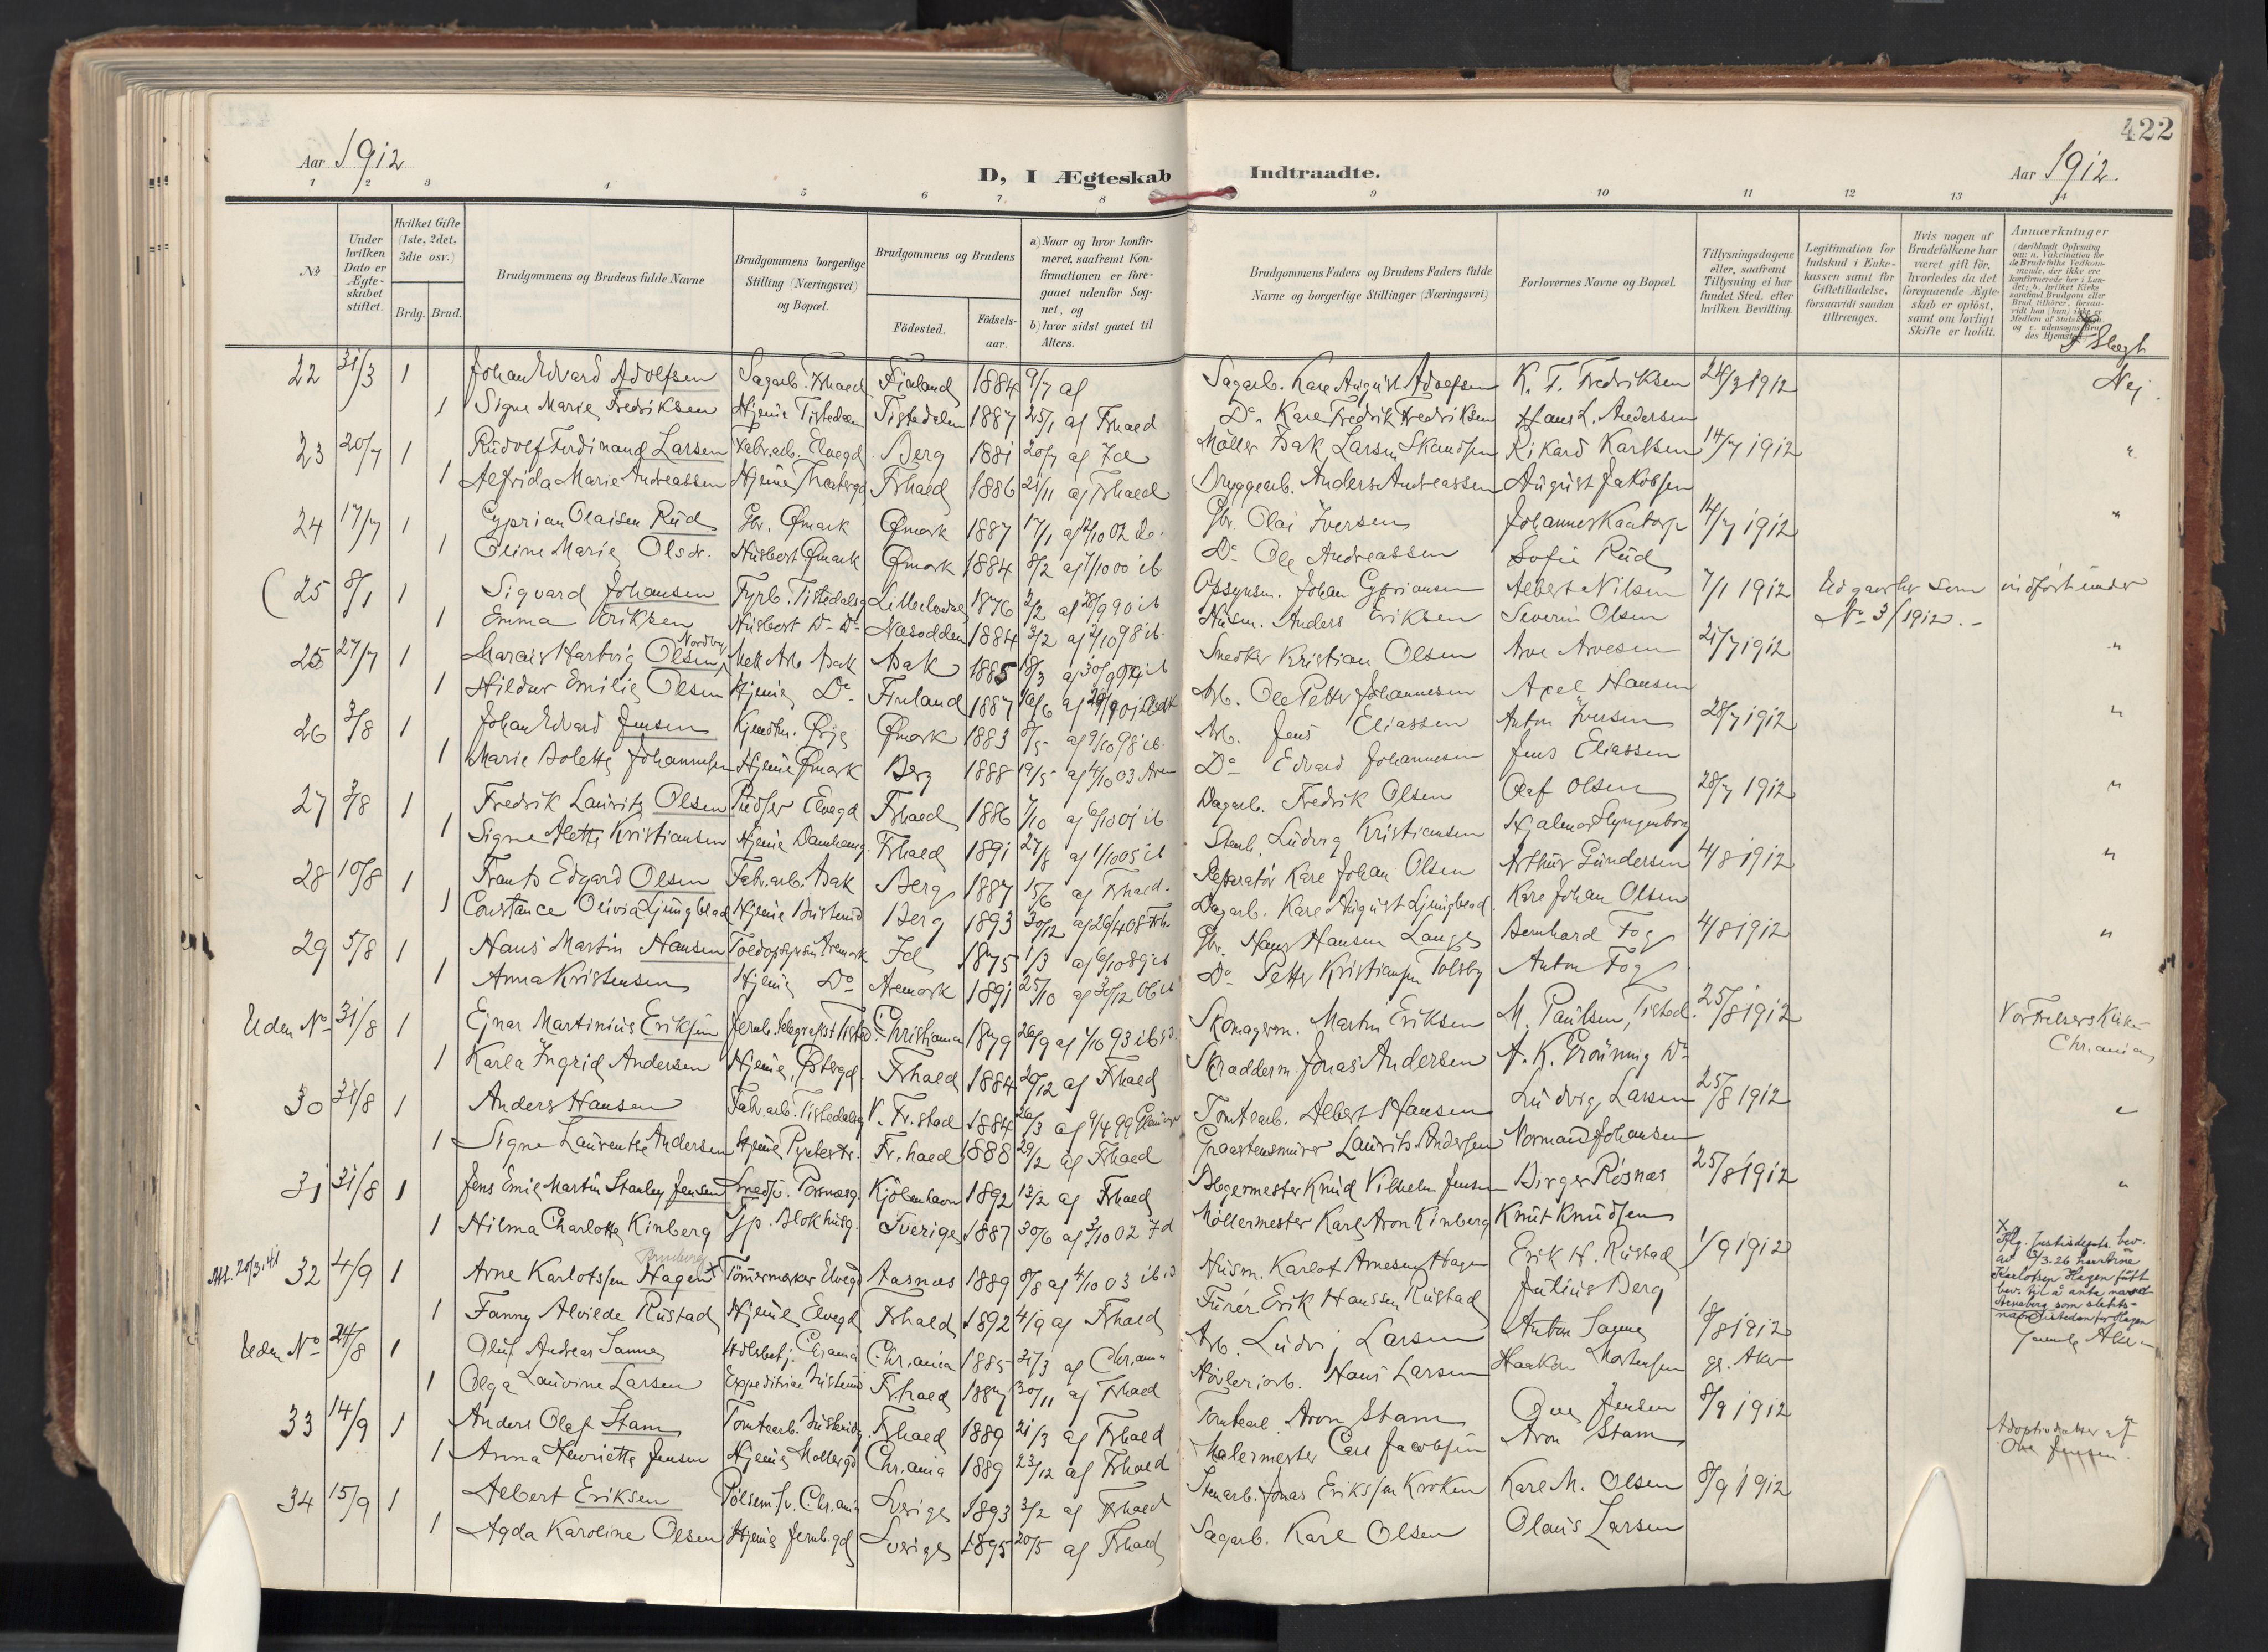 422
Aar 1912
D, I Ægteskab Indtraadte.
Aar 1912.
1 2 3 4 5 6 7 8 9 10 11 12 13 14
№
Under hvilken Dato er Ægteskabet stiftet.
Hvilket Gifte (1ste, 2det, 3die osv.)
Brdg. Brud.
Brudgommens og Brudens fulde Navne
Brudgommens borgerlige Stilling (Næringsvei) og Bopæl.
Brudgommens og Brudens
Fødested.
Fødselsaar.
a) Naar og hvor konfirmeret, saafremt Konfirmationen er foregaaet udenfor Sognet, og
b) hvor sidst gaaet til Alters.
Brudgommens Faders og Brudens Faders fulde Navne og borgerlige Stillinger (Næringsvei)
Forlovernes Navne og Bopæl.
Tillysningsdagene eller, saafremt Tillysning ei har fundet Sted, efter hvilken Bevilling.
Legitimation for Indskud i Enkekassen samt for Giftetilladelse, forsaavidt saadan tiltrænges.
Hvis nogen af Brudefolkene har været gift før, hvorledes da det foregaaende Ægteskab er opløst, samt om lovligt Skifte er holdt.
Anmærkninger
Slægt
22 31/3 1 Johan Edvard Adolfsen Sagarb. Frhald Finland 1884 9/7 af Sagarb. Karl August Adolfsen K. F. Fredriksen 24/3 1912 Nej
1 Signe Marie Fredriksen Hjemme Tistedalen Tistedalen 1887 25/1 af Frhald Do. Karl Fredrik Fredriksen Hans L. Andersen
23 20/7 1 Rudolf Ferdinand Larsen Fabr.arb. Elvegd. Berg 1881 20/7 af Id Møller Isak Larsen Rikard Karlsen 14/7 1912 "
1 Alfrida Marie Andreassen Hjemme Theatergd Frhald 1886 21/11 af Frhald Bryggearb. Anders Andreassen August Jakobsen
24 17/7 1 Cyprian Olaisen Rud Gbr. Ømark Ømark 1887 17/1 af 12/10 02 Gbr. Olai Iversen Johannes Kaatorp 14/7 1912 "
1 Oline Marie Olsdr. Husbest Ømark Ømark 1884 8/2 af 7/10 00 ib. Do. Ole Andreassen Sofie Rud
(25 8/1 1 Sigvard Johansen Fyrb. Tistedalsg 1876 2/2 af 28/9 90 ib Opsynsm. Johan Cyprianssen Albert Nilsen 7/1 1912 Udgaar her som indført under
1 Emma Eriksen Husbest Do. Do. Næsodden 1884 3/2 af 2/10 98 ib. Husm. Anders Eriksen Severin Olsen No. 3/1912.-
25 27/7 1 Marais Hartvig Olsen, Nordby Mek Arb. Asak Asak 1885 18/3 af 30/9 ib Snedker Kristian Olsen Arve Arvesen 21/7 1912 "
1 Hildur Emilie Olsen Hjemme Do. Finland 1887 16/6 af Arb. Ole Petter Johannesen Axel Hansen
26 3/8 1 Johan Edvard Jensen Ørje Ømark 1883 8/5 af 9/10 98 ib. Arb. Jens Eliassen Anton Iversen 28/7 1912 "
1 Marie Bolette Johannesen Hjemme Ømark Berg 1888 19/5 af 4/10 03 Do. Edvard Johannesen Jens Eliassen
27 3/8 1 Fredrik Lauritz Olsen Pudser Elvegd Frhald 1886 7/10 af 6/10 01 ib Dagarb. Fredrik Olsen Olaf Olsen 28/7 1912 "
1 Signe Aletta Kristiansen Hjemme Damhaug. Frhald 1891 27/8 af 1/10 05 ib Stenh. Ludvig Kristiansen Hjalmar
28 10/8 1 Frants Edvard Olsen Fabr.arb. Asak Berg 1887 15/6 af Frhald. Reparatør Karl Johan Olsen Arthur Gundersen 4/8 1912 "
1 Constance Olivia Ljungblad Hjemme Berg 1893 30/12 af 26/4 08 Frh. Dagarb. Karl August Ljungblad. Karl Johan Olsen
29 5/8 1 Hans Martin Hansen Toldopsynsm. Aremark Id 1875 1/3 af 6/10 89 ib Gbr. Hans Hansen Lange Bernhard Fog 4/8 1912 "
1 Anna Kristensen Hjemme Do Aremark 1891 25/10 af 30/12 06 ib Do. Petter Kristiansen Tolsby Anton Fog
Uden No. 31/8 1 Ejnar Martinius Eriksen Jernb. telegrafist Tisted. Christiania 1879 26/9 af 1/10 93 ib Skomagerm. Martin Eriksen M. Paulsen, Tisted. 25/8 1912 Vor Frelsers Kirke Chr.ania
1 Karla Ingrid Andersen Hjemme, Østergd. Frhald 1884 20/12 af Frhald Skrædderm. Jonas Andersen A. K. Grønning Do
30 31/8 1 Anders Hansen Fabr.arb. Tistedalsg V. Fr.stad 1884 26/3 af 9/4 99 Tomtearb. Albert Hansen Ludvig Larsen 25/8 1912 "
1 Signe Laurentse Andersen Hjemme Fr.hald 1888 29/2 af Frhald Graastensmurer Laurits Andersen Normand Johansen
31 31/8 1 Jens Emil Martin Stanley Jensen Smedsv. Kjøbenhavn 1892 13/2 af Frhald Bagermester Knud Vilhelm Jensen Birger Røsnæs 25/8 1912 "
1 Hilma Charlotte Kinberg Tjp. Blokhusg. Sverige 1887 30/6 af 3/10 02 Id Møllermester Karl Aron Kinberg Knut Knudsen
Att. 20/3.41 32 4/9 1 Arne Karlotssen Hagen x Tømmermærker Elvegd Aasnæs 1889 8/8 af 4/10 03 ibid Husm. Karlot Arnesen Hagen Erik H. Rustad 1/9 1912
x Iflg. Justisdepts. bev. av 3/3-26 har Arne Karlotsen Hagen fått bev. til å anta navnet Arneberg som slektsnavn istedenfor Hagen
1 Fanny Alvilde Rustad Hjemme Elvegd Frhald 1892 4/9 af Frhald Furér Erik Hanssen Rustad Julius Berg
Uden No 24/8 1 Oluf Andreas Sanne Chr.ania Chr.ania 1885 31/3 af Chr.ania Arb. Ludvig Larsen Anton Sanne 18/8 1912 Gamle Aker
1 Olga Lauvine Larsen Expeditrice Frhald 1887 30/11 af Frhald Høvleriarb. Hans Larsen Haakon Mortensen gl. Aker
33 14/9 1 Anders Olaf Stam Tomtearb. Frhald 1889 21/3 af Frhald Tomtearb. Aron Stam Ove Jensen 8/9 1912 Adoptivdatter af Ove Jensen.
1 Anna Henriette Jensen Hjemme Møllergd Chr.ania 1889 23/12 af Frhald Malermester Carl Jacobsen Aron Stam
34 15/9 1 Albert Eriksen Pølsem. Chr.ania Sverige 1893 3/2 af Frhald Stenarb. Jonas Erikssen Kroken Karl M. Olsen 8/9 1912
1 Agda Karoline Olsen Hjemme Jernb.gd Sverige 1895 20/5 af Frhald Sagarb. Karl Olsen Olaus Larsen